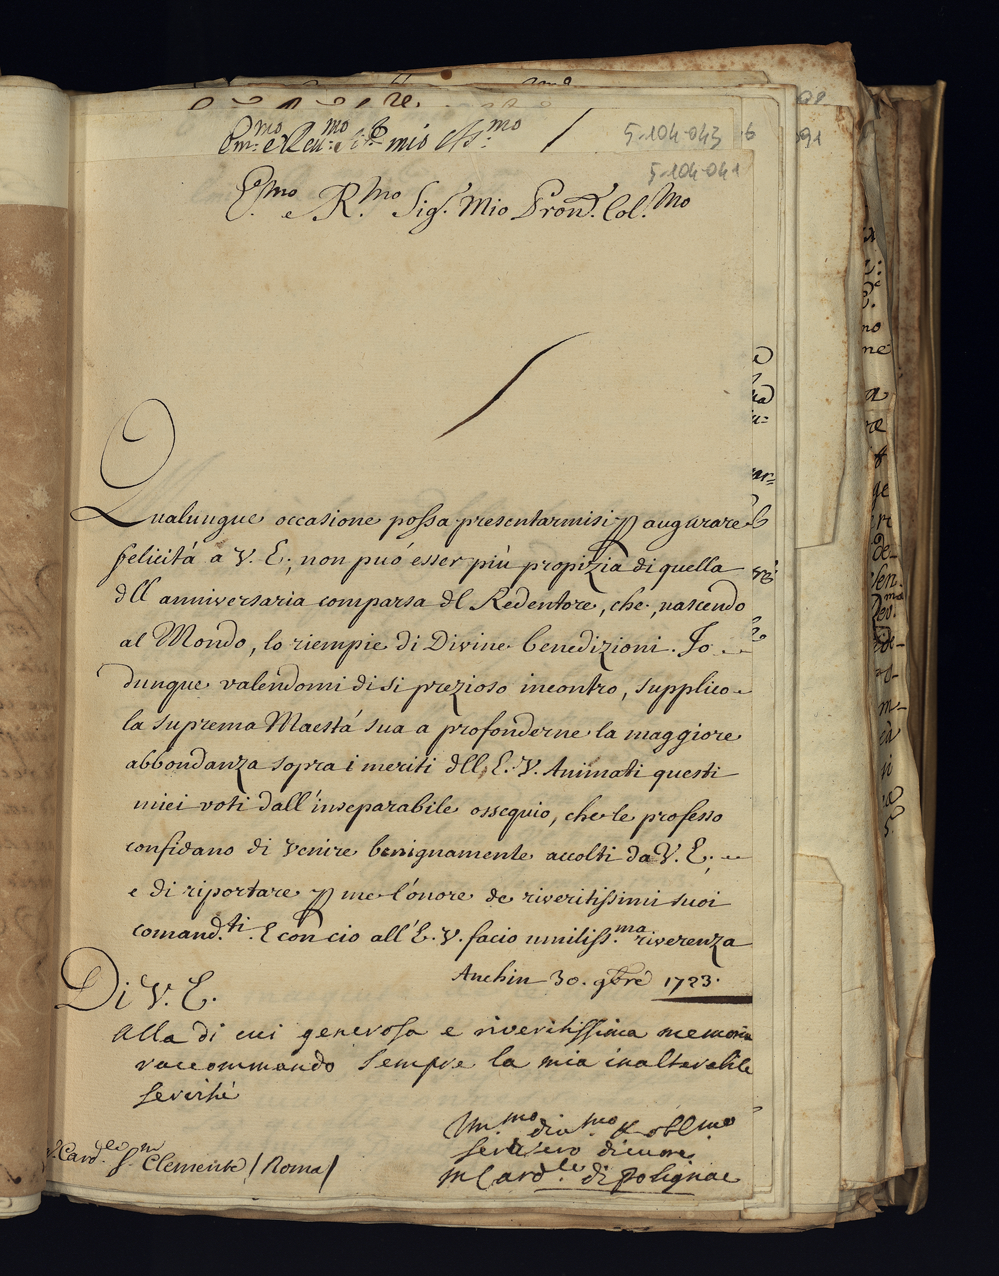 E.mo e R.mo Sig.r mio
5-104-043
5-104-041
E.mo e R.mo Sig.r Mio Pron.e Col.mo
Qualunque occasione possa presentarmisi p augurare
felicitá a V. E., non puó esser piú propizia di quella
dll anniversaria comparsa dl Redentore, che, nascendo
al Mondo, lo riempie di Divine benedizioni. Jo
dunque valendomi di si prezioso incontro, supplico
la suprema Maestá sua a profonderne la maggiore
abbondanza sopra i meriti dll E. V. Animati questi
miei voti dall'inseparabile ossequio, che le professo
confidano di venire benignamente accolti da V. E.,
e di riportare p me l'onore de riveritissimi suoi
comand.ti. E con cio all'E. V. facio umiliss.ma riverenza
Anchin 30. 9bre 1723.
Di V. E.
alla di cui generosa e riveritissima memoria
raccommando sempre la mia inalterabile
servitù
Um.mo div.mo et obl.mo
servitero di cuore
S. Card.le S.n Clemente / Roma /
M Card.le di Polignac